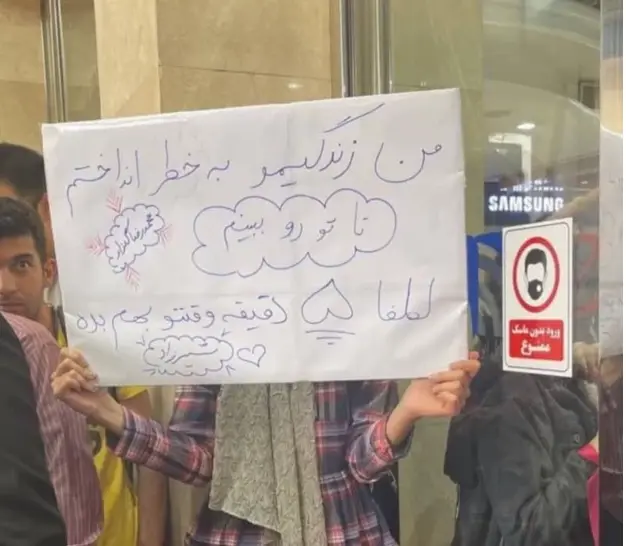 من زندگیمو به خطر انداختم
تا تو رو ببینم
محمدرضا گلزار
لطفا ۵ دقیقه وقتتو بهم بده
شهرزاد
SAMSUNG
ورود بدون ماسک
ممنوع